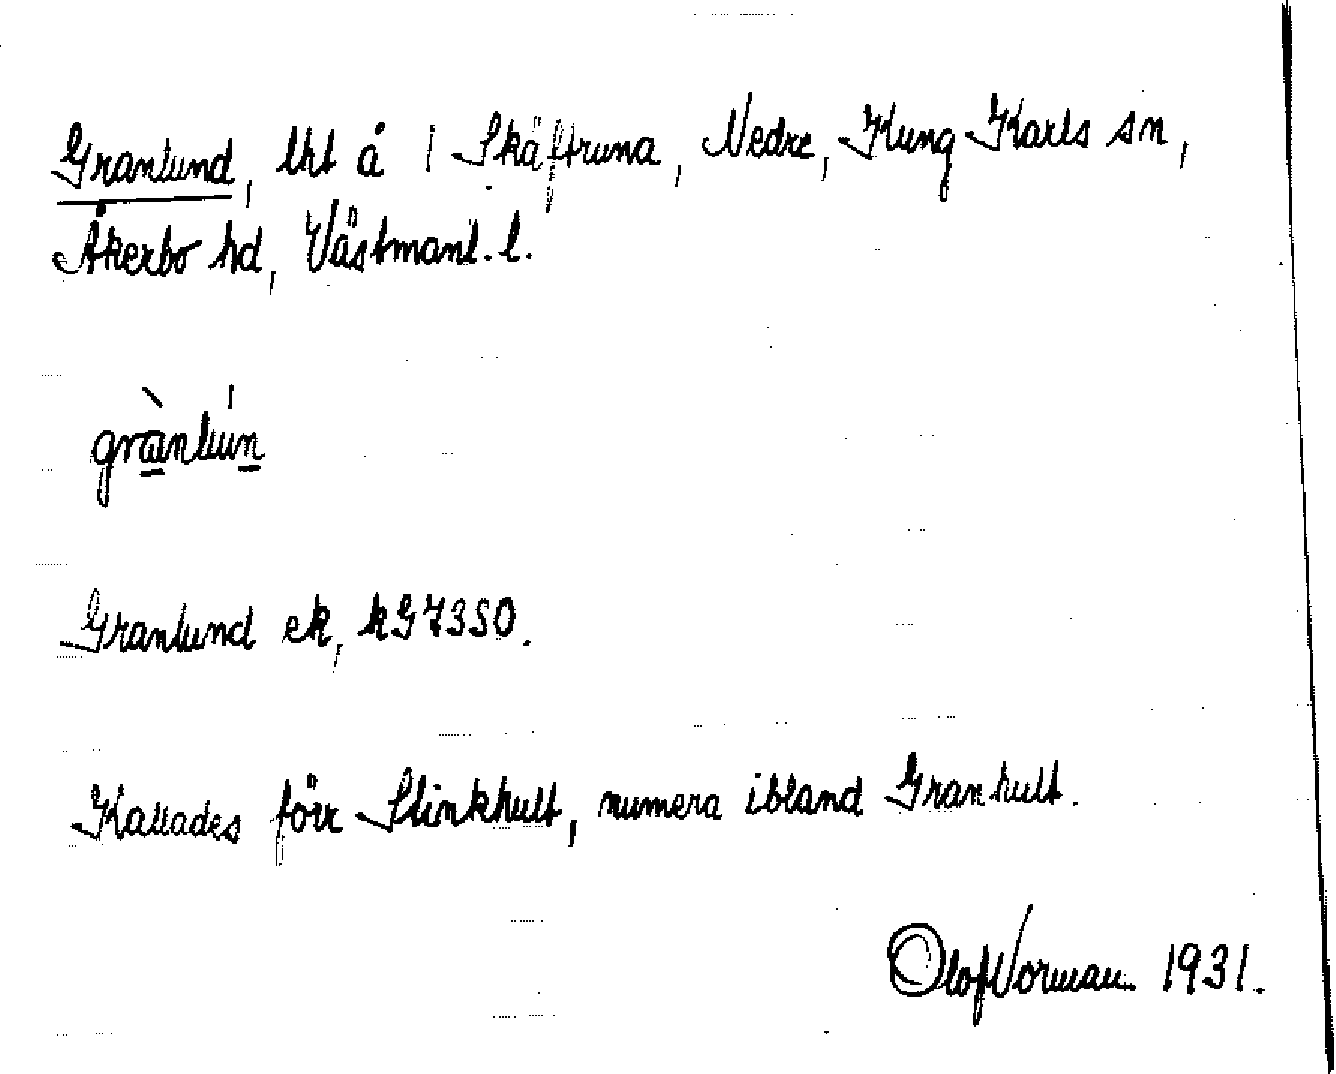 Granlund, lht å 1 Skäftruna, Nedre, Kung Karls sn,
Åkerbo hd, Västmanl. l.
grànlún
Granlund ek, kG7350.
Kallades förr Slinkhult, numera ibland Granhult.
Olof Norman 1931.